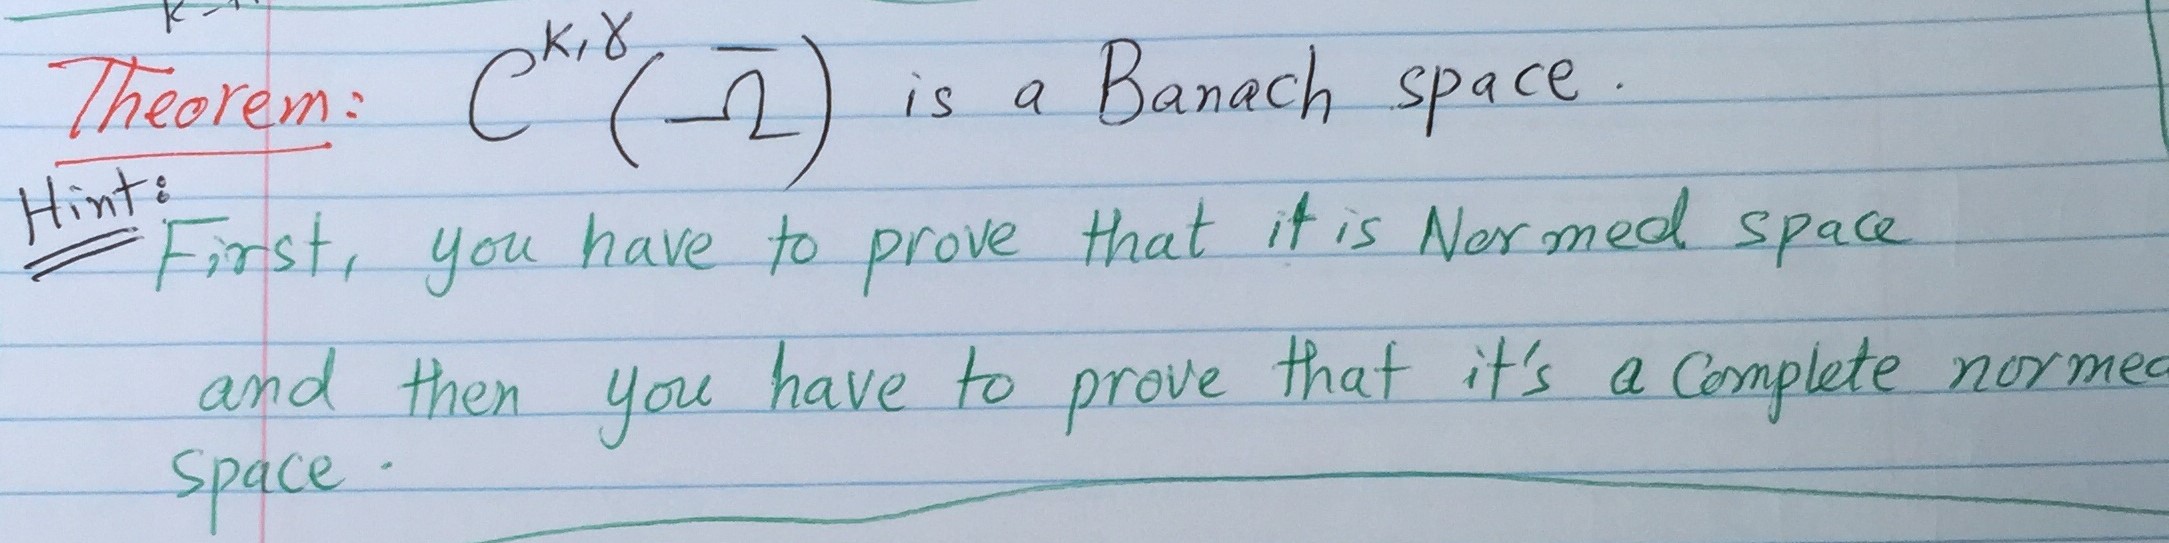 Theorem: C^{k,γ}(Ω̄) is a Banach space.
Hint:
First, you have to prove that it is Normed space
and then you have to prove that it's a Complete normed
space.